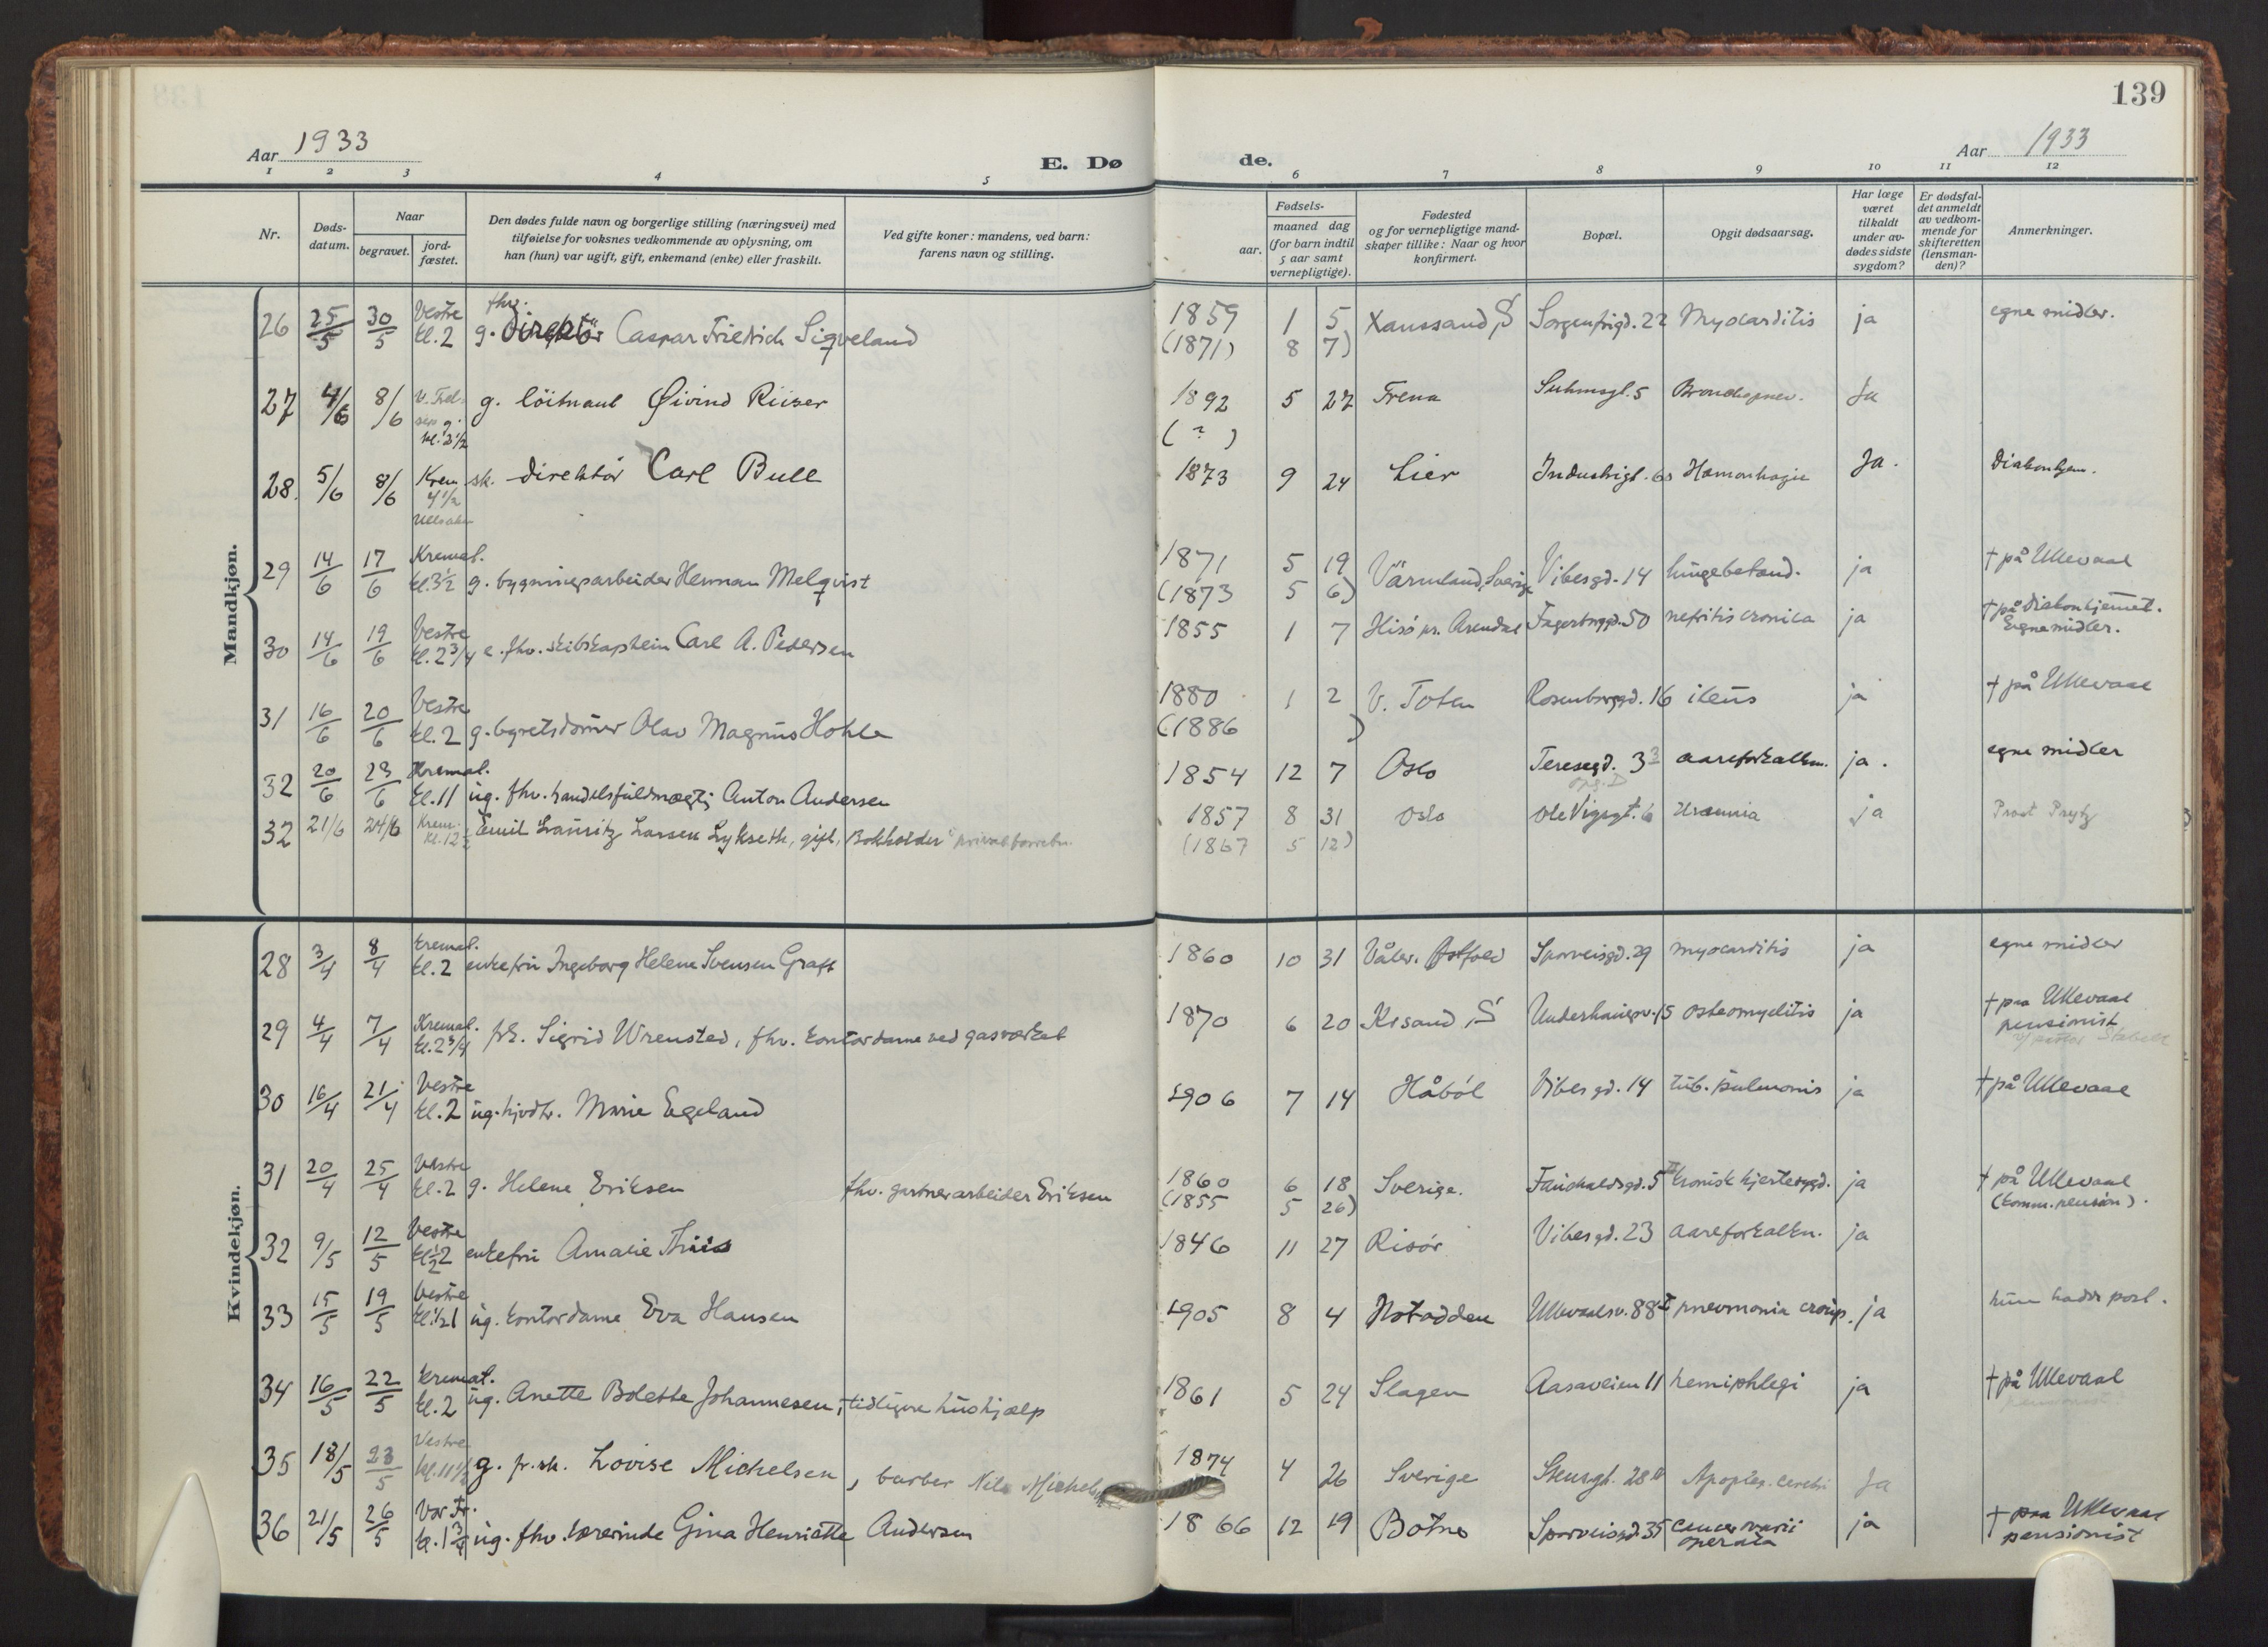 139
Aar 1933
E. Dø
de.
Aar 1933
1 2 3 4 5 6 7 8 9 10 11 12
Nr.
Døds-
datum.
Naar
begravet.
jord-
fæstet.
Den dødes fulde navn og borgerlige stilling (næringsvei) med
tilføielse for voksnes vedkommende av oplysning, om
han (hun) var ugift, gift, enkemand (enke) eller fraskilt.
Ved gifte koner: mandens, ved barn:
farens navn og stilling.
Fødsels-
aar.
maaned dag
(for barn indtil
5 aar samt
vernepligtige).
Fødested
og for vernepligtige mand-
skaper tillike: Naar og hvor
konfirmert.
Bopæl.
Opgit dødsaarsag.
Har læge
været
tilkaldt
under av-
dødes sidste
sygdom?
Er dødsfal-
det anmeldt
av vedkom-
mende for
skifteretten
(lensman-
den)?
Anmerkninger.
Mandkjøn.
26 25/5 30/5 Vestre kl. 2 g. fhv. Direktör Caspar Friedrich Sigveland 1859 1 5 Xanssand, S Sorgenfrigd. 22 Myocarditis ja egne midler.
(1871) 8 7)
27 4/6 8/6 kl. 3 1/2 g. löitnant Øivind Riiser 1892 5 27 Trena Suhmsgt. 5 Bronchopnev. Ja
( ? )
28. 5/6 8/6 Krem 4 1/2 Ullsaker sk. direktör Carl Bull 1873 9 24 Lier Industrigt. 60 Hæmorrhagie Ja. Diakonhjem.
29 14/6 17/6 Kremat. kl. 3 1/2 g. bygningsarbeider Herman Melqvist 1871 5 19 Värmland, Sverige Vibesgd. 14 lungebetænd. ja † på Ullevaal
(1873 5 6)
30 14/6 19/6 Vestre kl. 2 3/4 e. fhv. skibskaptein Carl A. Pedersen 1855 1 7 Hisö pr. Arendal Fagerborggd. 50 nefritis cronica ja † på Diakonhjemmet.
Egne midler.
31 16/6 20/6 Vestre kl. 2 g. byretsdomer Olav Magnus Hohle 1880 1 2 V. Toten Rosenborggd. 16 ileus ja † på Ullevaal
(1886 )
32 20/6 23/6 Kremat. kl. 11 ug. fhv. handelsfuldmægtig Anton Andersen 1854 12 7 Oslo Teresegd. 33 opg. D aareforkalkn. ja. egne midler
32 21/6 24/6 Krem. kl. 12 1/2 Emil Lauritz Larsen Lykseth, gift, Bokholder i privat forretn. 1857 8 31 Oslo Ole Vigsgt. 6 Uræmia ja Prost Prytz
(1867 5 12)
Kvindekjøn.
28 3/4 8/4 Kremat. kl. 2 enkefru Ingeborg Helene Svensen Graff 1860 10 31 Våler. Østfold Sporveisgd. 29 myocarditis ja egne midler
29 4/4 7/4 Kremat. kl. 2 3/4 frk. Sigrid Wrensted, fhv. kontordame ved gasværket 1870 6 20 Krsand, S Underhaugsv. 15 osteomyelitis ja † paa Ullevaal
pensionist
v/ pastor Stabell
30 16/4 21/4 Vestre kl. 2 ug. hjvdtr. Marie Egeland 1906 7 14 Håböl Vibesgd. 14 tub. pulmonis ja † på Ullevaal
31 20/4 25/4 Vestre kl. 2 g. Helene Eriksen fhv. gartnerarbeider Eriksen 1860 6 18 Sverige. Fauchaldsgd. 5 II kronisk hjertesygd. ja † på Ullevaal
(1855 5 26) (komm. pension).
32 9/5 12/5 Vestre kl. 1/2 2 enkefru Amalie Thiis 1846 11 27 Risör Vibesgd. 23 aareforkalkn. ja
33 15/5 19/5 Vestre kl. 1/2 1 ug. kontordame Eva Hansen 1905 8 4 Notodden Ullevaalsv. 88 I pneumonia croup. ja hun hadde post.
34 16/5 22/5 kremat. kl. 2 ug. Anette Bolette Johannesen, tidligere hushjælp 1861 5 24 Slagen Aasaveien 11 hemiphlegi ja † på Ullevaal
pensionist
35 18/5 23/5 Vestre kl. 11 1/2 g. fr. sk. Lovise Michelsen, barber Nils Michelsen 1874 4 26 Sverige Stensgt. 28 Apoplex. cerebri Ja
36 21/5 26/5 Vor Fr. kl. 1 3/4 ug. fhv. lærerinde Gina Henriette Andersen 1866 12 19 Botne Sporveisgd. 35 cancer ovarii
operata ja † paa Ullevaal
pensionist